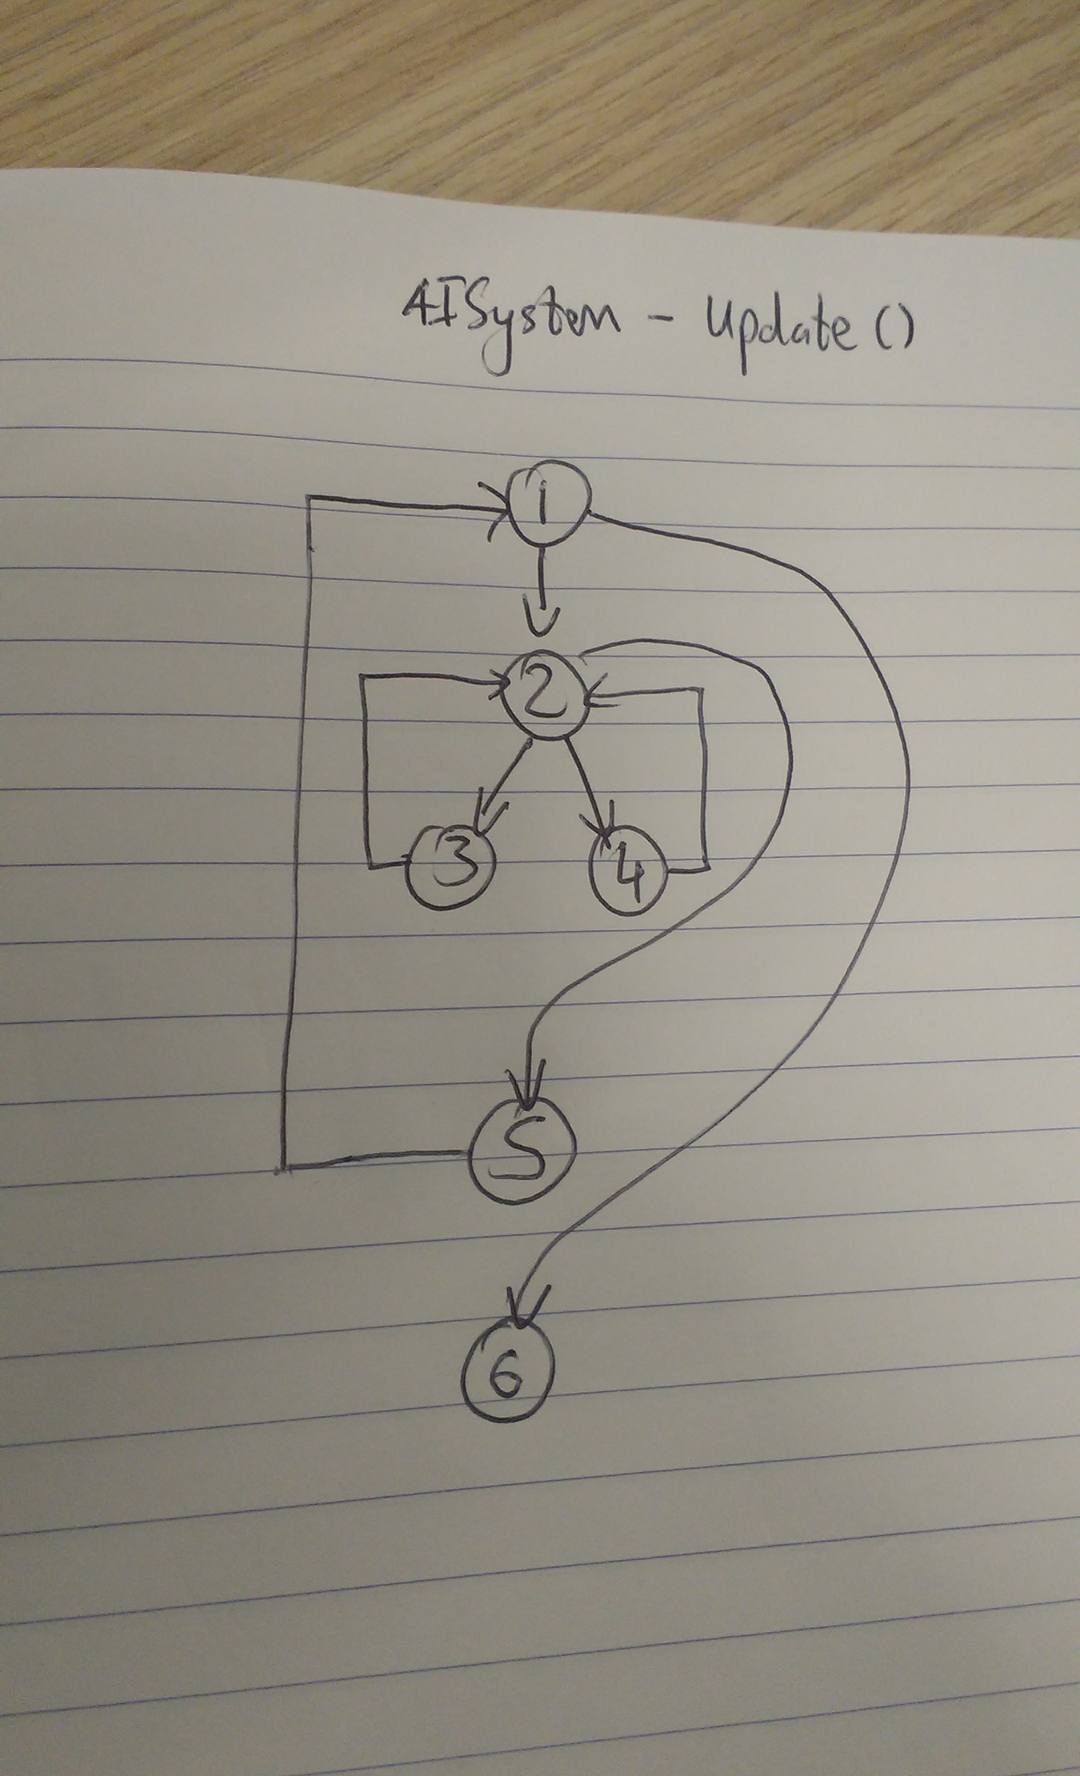 AISystem - Update()
1
2
3 4
5
6